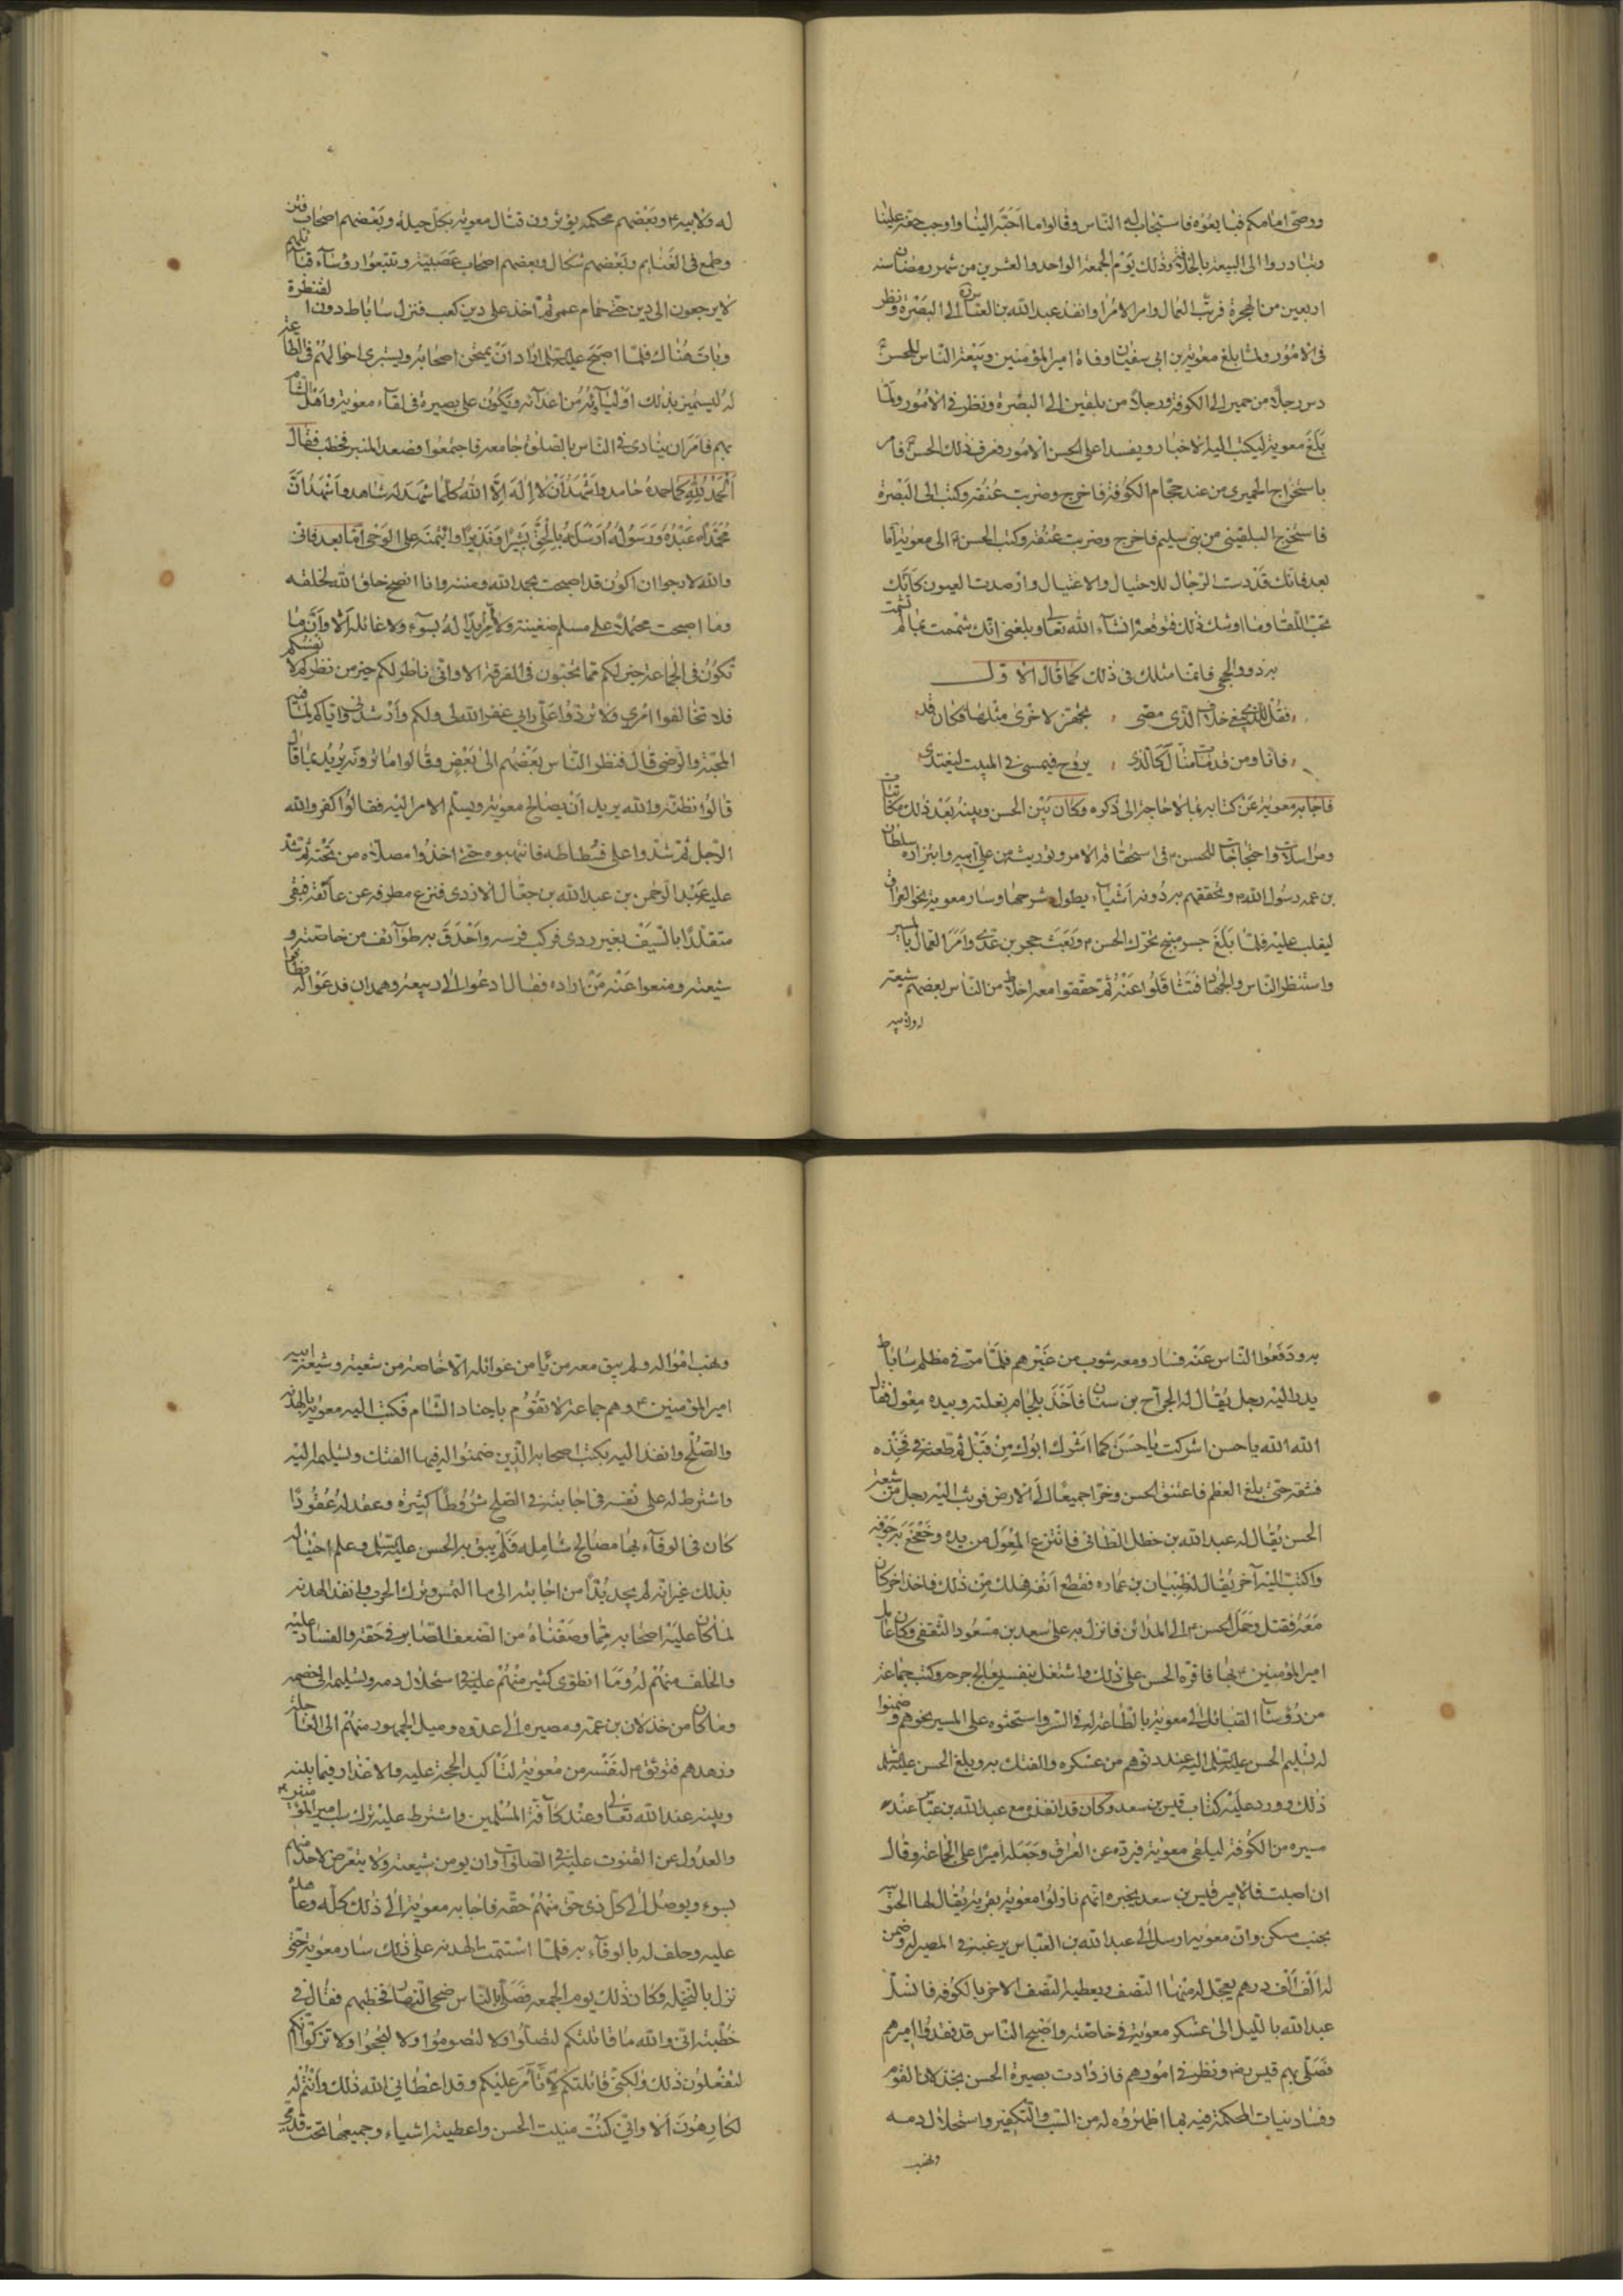 ووصي امامكم فبايعوه فاستجاب له الناس وقالوا ما احبه الينا واوجب حقه علينا
وتبادروا الى البيعة بالخلافة وذلك يوم الجمعة الواحد والعشرين من شهر رمضان سنة
اربعين من الهجرة فرتب العمال وامر الامراء وانفذ عبدالله بن العباس الى البصرة ونظر
في الامور ولما بلغ معوية بن ابي سفيان وفاة امير المؤمنين وبيعة الناس للحسن
دس رجلا من حمير الى الكوفة ورجلا من بلقين الى البصرة ونظر في الامور ولما
بلغ معوية ليكتب اليه الاخبار ويفسدا على الحسن الامور فعرف ذلك الحسن فامر
باستخراج الحميري من عند حجام الكوفة فاخرج وضربت عنقه وكتب الى البصرة
فاستخرج البلقيني من بني سليم فاخرج وضربت عنقه وكتب الحسن الى معوية اما
بعد فانك قد دست الرجال للاحتيال والاغتيال وارصدت العيون كانك
تحب اللقا وما اوشك ذلك فتوقعه انشاء الله تعالى وبلغني انك شمت بما لم يشمت
به ذووالحجى فانما مثلك في ذلك كما قال الاول
فقل للذي يبغي خلاف الذي مضى تجهز لاخرى مثلها فكان قد
فانا ومن قد مات منا لكالذي يروح فيمسي في المبيت ليغتدي
فاجابه معوية عن كتابه بما لا حاجة الى ذكره وكان بين الحسن وبينه بعد ذلك مكاتبات
ومراسلات واحتجاجات للحسن في استحقاقه الامر وتوريثه من على ابيه وابتزازه سلطان
بن عمه رسول الله وتحققهم به دونه اشياء يطول شرحها وسار معوية نحو العراق
ليغلب عليه فلما بلغ جسر منبج تحرك الحسن وبعث حجر بن عدي وامر العمال بالمسير
واستنظر الناس والجهاد فتثاقلوا عنه ثم حققوا معه اخلاط من الناس بعضهم شيعة
له ولابيه
له ولابيه وبعضهم محكمة يؤثرون قتال معوية بكل حيلة وبعضهم اصحاب فتن
وطمع في الغنايم وبعضهم شكال وبعضهم اصحاب عصبية وتتبعوا رؤساء قبائلهم
لا يرجعون الى دين حتى حمام عمر ثم اخذ على دير كعب فنزل ساباط دون القنطرة
وبات هناك فلما اصبح عليه السلم اراد ان يمتحن اصحابه ويستبرى احوالهم في الطاعة
له ليتميز بذلك اولياؤه من اعدائه ويكون على بصيرة في لقاء معوية واهل الشام
بهم فامر ان ينادى في الناس بالصلوة جامعة فاجتمعوا فصعد المنبر فخطب فقال
الحمد لله كما حمده حامد واشهد ان لا اله الا الله كلما شهد له شاهد واشهد ان
محمدا عبده ورسوله ارسله بالحق بشيرا ونذيرا وائتمنه على الوحي اما بعد فاني
والله لارجوا ان اكون قد اصبحت بحمد الله ومنه وانا انصح خلق الله لخلقه
وما اصبحت محتملا على مسلم ضغينة ولا مريدا له بسوء ولا غائلة الا وان ما
تكون في الجماعة خير لكم مما تحبون في الفرقة الا واني ناظر لكم خير من نظركم لانفسكم
فلا تخالفوا امري ولا تردوا علي رأيي غفر الله لي ولكم وارشدني واياكم لما فيه
المحبة والرضى قال فنظر الناس بعضهم الى بعض وقالوا ما ترونه يريد بما قال
قالوا نظنه والله يريد ان يصالح معوية ويسلم الامر اليه فقالوا كفر والله
الرجل ثم شدوا على فسطاطه فانتهبوه حتى اخذوا مصلاه من تحته ثم شد
عليه عبد الرحمن بن عبدالله بن جعال الازدي فنزع مطرفه عن عاتقه فبقي
متقلدا بالسيف بغير ردى فركب فرسه واحدق به طوائف من خاصته و
شيعته ومنعوا عنه من اراده فقال ادعوا الى ربيعة وهمدان فدعوا له فطافوا
به ودفعوا الناس عنه فسار ومعه شوب من غيرهم فلما مر في مظلم ساباط
بدر اليه رجل يقال له الجراح بن سنان فاخذ بلجام بغلته وبيده مغول فقال
الله الله ياحسن اشركت ياحسن كما اشرك ابوك من قبل ثم طعنه في فخذه
فشقه حتى بلغ العظم فاعتنق الحسن وخرا جميعا الى الارض فوثب اليه رجل من شيعة
الحسن يقال له عبدالله بن خطل الطائي فانتزع المغول من يده وخعخع به جوفه
واكتب اليه آخر يقال لظبيان بن عماره فقطع انفه فهلك من ذلك فاخذ اخر كان
معه فقتل وحمل الحسن الى المدائن فانزل به على سعد بن مسعود الثقفي وكان عامل
امير المؤمنين بها فاقره الحسن على ذلك واشتغل بنفسه يعالج جرحه وكتب جماعة
من رؤسآء القبائل الى معوية بالطاعة له في السر واستحثوه على المسير نحوهم وضمنوا
له تسليم الحسن عليه السلم اليه عند دنوهم من عسكره والفتك به وبلغ الحسن عليه السلم
ذلك وورد عليه كتاب قيس بن سعد وكان قد انفذه مع عبدالله بن عباس عند
مسيره من الكوفة ليلقى معوية فيرده عن العراق وجعله اميرا على الجماعة وقال
ان اصبت فالامير قيس بن سعد يخبره انهم نازلوا معوية بقرية يقال لها الحبوبية
بجنب مسكن وان معوية ارسل الى عبدالله بن العباس يرغبه في المصير له وضمن
له الف الف درهم يعجل له منها النصف ويعطيه النصف الاخر بالكوفة فانسل
عبدالله بالليل الى عسكر معوية في خاصته واصبح الناس قد فقدوا اميرهم
فصلى بهم قيس رض ونظر في امورهم فازدادت بصيرة الحسن بخذلان القوم
وفساد نيات المحكمة فيه بما اظهروه له من السب والتكفير واستحلال دمه
ونهب
ونهب امواله ولم يبق معه من يامن غوائله الا خاصة من شيعته وشيعة ابيه
امير المؤمنين وهم جماعة لا تقوم باجناد الشام فكتب اليه معوية بالهدنة
والصلح وانفذ اليه بكتب اصحابه الذين ضمنوا له فيها الفتك وتسليمه اليه
واشترط له على نفسه في اجابته في الصلح شروطا كثيرة وعقد له عقودا
كان في الوفآء بها مصالح شاملة فلم يثق به الحسن عليه السلم وعلم احتياله
بذلك غير انه لم يجد بدا من اجابته الى ما التمس وترك الحرب وانفذ الهدنة
لما كان عليه اصحابه مما وصفناه من الضعف الصابر في حقه والفساد عليه
والخلف منهم له وما انطوى كثير منهم عليه في استحلال دمه وتسليمه الى خصمه
وما كان من خذلان بن عمه ومصيره الى عدوه وميل الجمهور منهم الى العاجلة
وزهدهم فتوثق لنفسه من معوية لتاكيد الحجة عليه والاعذار فيما بينه
وبينه عند الله تعالى وعند كآفة المسلمين واشترط عليه ترك سب امير المؤمنين
والعدول عن القنوت عليه في الصلوات وان يومن شيعته ولا يتعرض لاحد منهم
بسوء ويوصل الى كل ذي حق منهم حقه فاجابه معوية الى ذلك كله وعاهده
عليه وحلف له بالوفآء به فلما استتمت الهدنة على ذلك سار معوية حتى
نزل بالنخيلة وكان ذلك يوم الجمعة فصلى بالناس ضحى النهار فخطبهم فقال في
خطبته اني والله ما قاتلتكم لتصلوا ولا لتصوموا ولا لتحجوا ولا تزكوا انكم
لتفعلون ذلك ولكني قاتلتكم لاتأمر عليكم وقد اعطاني الله ذلك وانتم له
لكارهون الا واني كنت منيت الحسن واعطيته اشياء وجميعها تحت قدمي